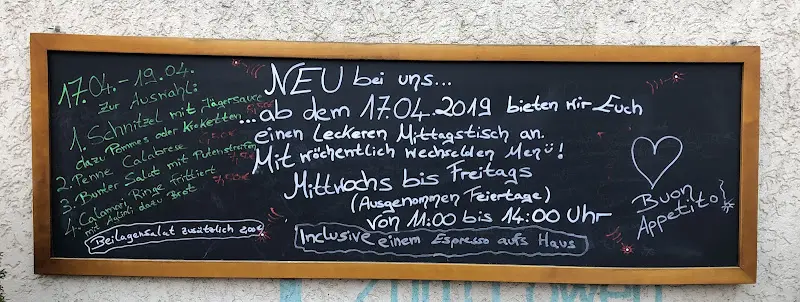 17.04.-19.04.
Zur Auswahl:
1. Schnitzel mit Jägersauce
dazu Pommes oder Kroketten
2. Penne Calabrese
3. Bunter Salat mit Putenstreifen
4. Calamari Ringe frittiert
mit Aioli, dazu Brot
Beilagensalat zusätzlich 2,00€
NEU bei uns...
...ab dem 17.04.2019 bieten wir Euch
einen leckeren Mittagstisch an.
Mit wöchentlich wechselden Menü!
Mittwochs bis Freitags
(Ausgenommen Feiertage)
von 11:00 bis 14:00 Uhr
Inclusive einem Espresso aufs Haus
Buon
Appetito!